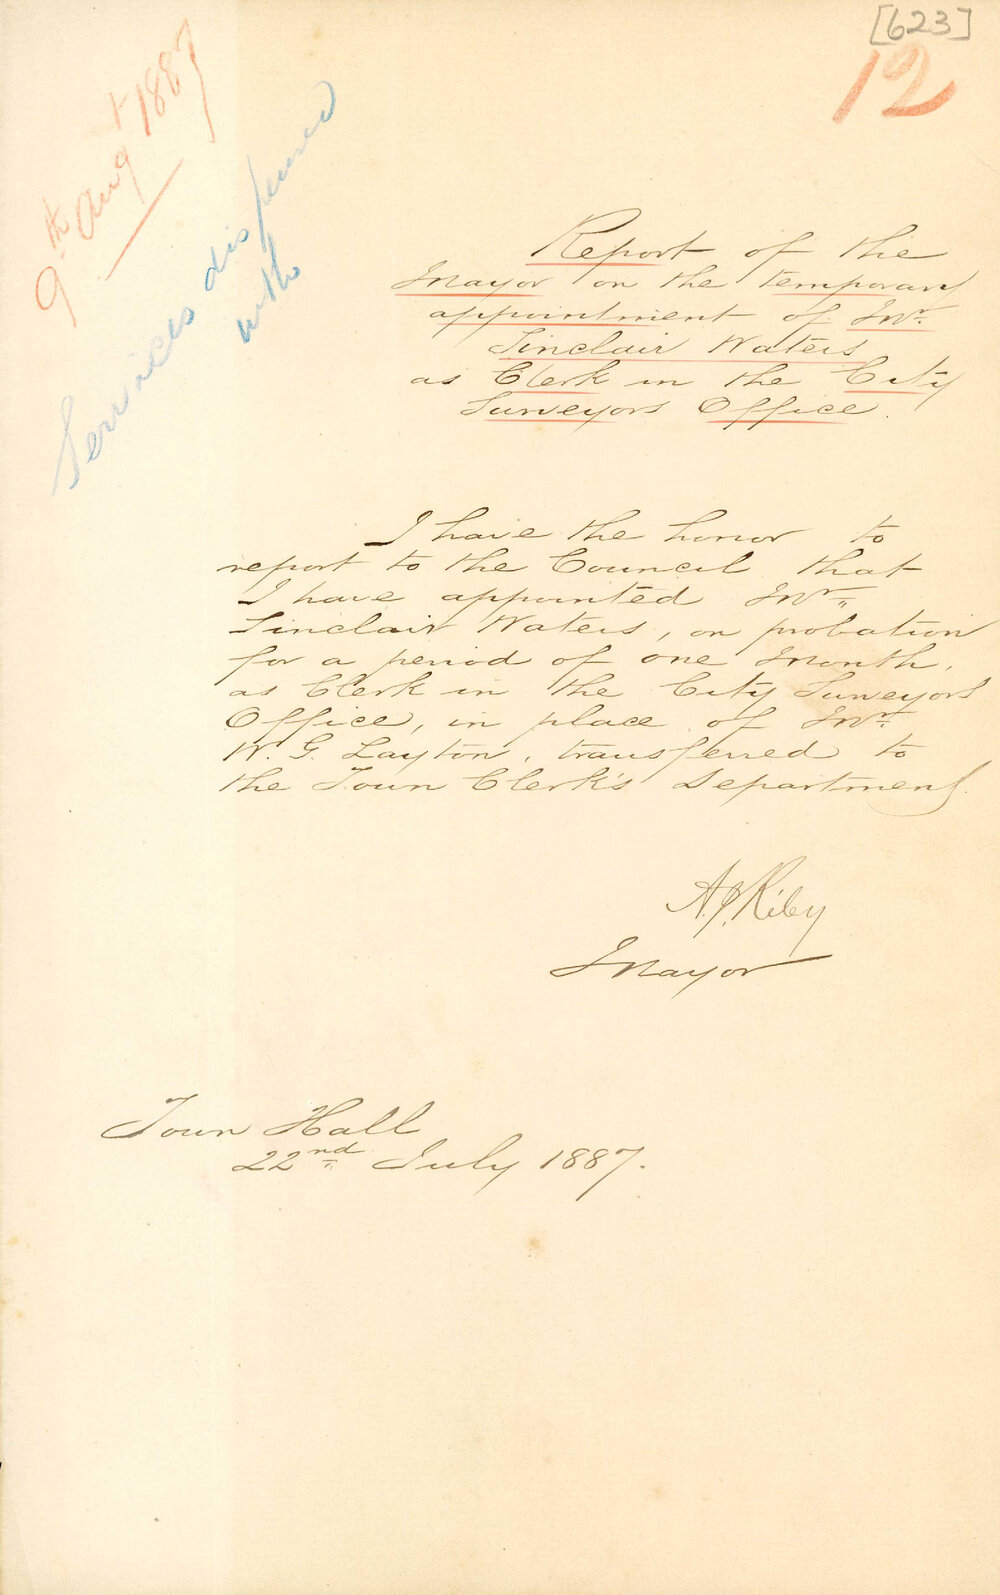 [623]
12
9th Augt 1887
Services dispensed
with
Report of the
Mayor on the temporary
appointment of Mr.
Sinclair Waters
as Clerk in the City
Surveyors Office.
I have the honor to
report to the Council that
I have appointed Mr.
Sinclair Waters, on probation
for a period of one Month,
as Clerk in the City Surveyors
Office, in place of Mr.
W. G. Layton, transferred to
the Town Clerk's Department.
A. J. Riley
Mayor
Town Hall
22nd July 1887.